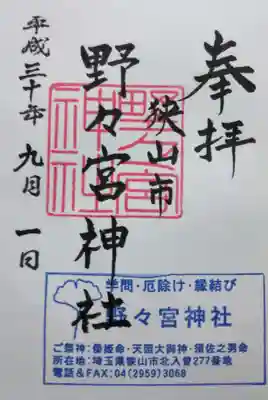 奉拝
狭山市
野々宮神社
平成三十年 九月 一日
野宮
神社
学問・厄除け・縁結び
野々宮神社
ご祭神:倭姫命・天照大御神・須佐之男命
所在地:埼玉県狭山市北入曽277番地
電話&FAX:04(2959)3068